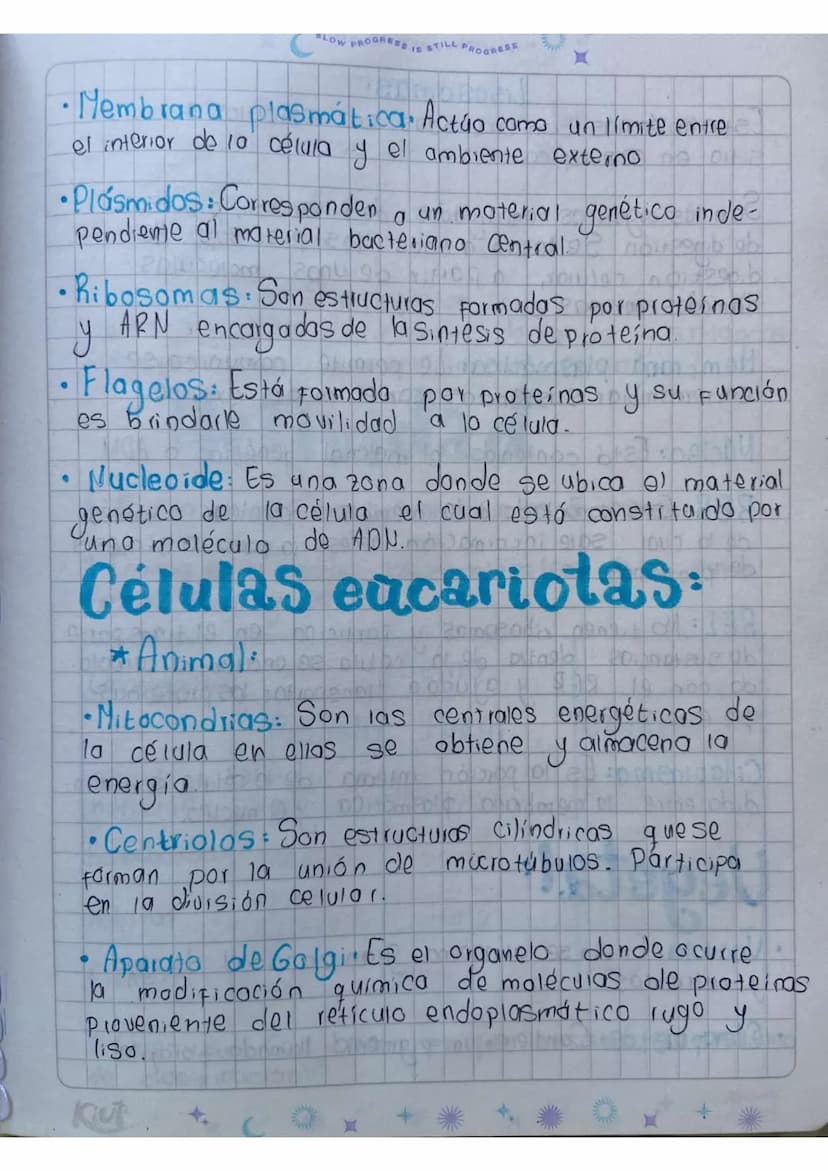 SLOW PROGRESS IS STILL PROGRESS
· Membrana plasmática. Actúo como un límite entre
el interior de la célula y el ambiente externo
· Plásmidos: Corresponden a un material genético inde-
pendiente al material bacteriano central.
· Ribosomas: Son estructuras formadas por proteínas
y ARN encargadas de la sintesis de proteína.
· Flagelos: Está formada por proteínas y su función
es brindarle movilidad a la célula.
· Nucleoide: Es una zona donde se ubica el material
genético de la célula el cual está constituido por
una molécula de ADN.
Células eucariotas:
* Animal:
· Mitocondrias: Son las centrales energéticas de
la célula en ellas se obtiene y almacena la
energía.
· Centriolos: Son estructuras cilíndricas que se
forman por la unión de microtúbulos. Participa
en la división celular.
· Aparato de Golgi: Es el organelo donde ocurre
la modificación química de moléculas de proteínas
proveniente del retículo endoplasmático rugo y
liso.
Kiut